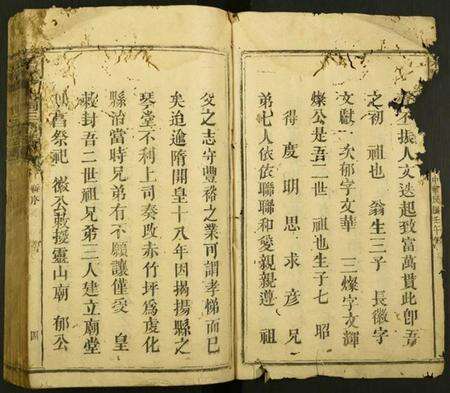 不振人文迭起致富萬貫此卽吾
之初 祖也 翁生三子 長徽字
文獻 次郁字文華 三燦字文輝
燦公是吾二世 祖也生子七 昭
得度明思求彥兄
弟七人依依聯聯和愛親親遵 祖
父之志守豐裕之業可謂孝悌而已
矣迨逾隋開皇十八年因揭揚縣之
琴堂不利上司奏改赤竹坪爲虔化
縣治當時兄弟有不願讓僅受 皇
敕封吾二世祖兄弟三人建立廟堂
昌祭祀 徽公敕授靈山廟 郁公